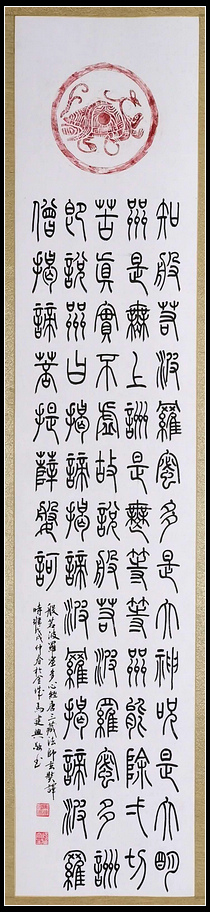 知般若波羅蜜多是大神呪是大明
呪是無上呪是無等等呪能除弌切
苦真實不虛故說般若波羅蜜多呪
即說呪曰揭諦揭諦波羅揭諦波羅
僧揭諦菩提薩婆訶
般若波羅蜜多心經唐三藏法師玄奘譯
時維戊戌仲春於金城馬建興敬書